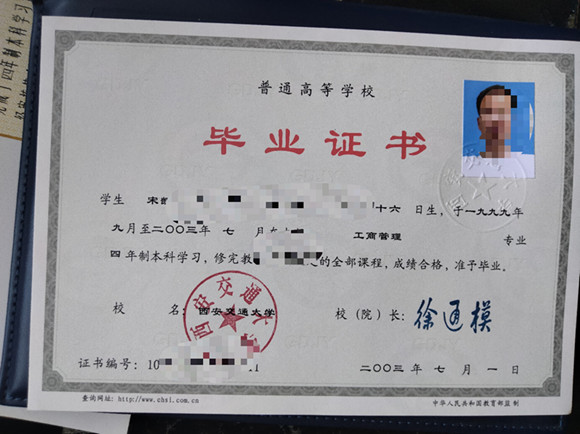 四年制本科学习
普通高等学校
毕业证书
学生 宋 十六 日生，于一九九九年
九月至二〇〇三年 七 月 工商管理 专业
四年制本科学习，修完教 的全部课程，成绩合格，准予毕业。
校 名：西安交通大学 校（院）长：徐通模
西安交通大
证书编号：10 1 二〇〇三年 七 月 一 日
查询网址：http://www.chsi.com.cn 中华人民共和国教育部监制